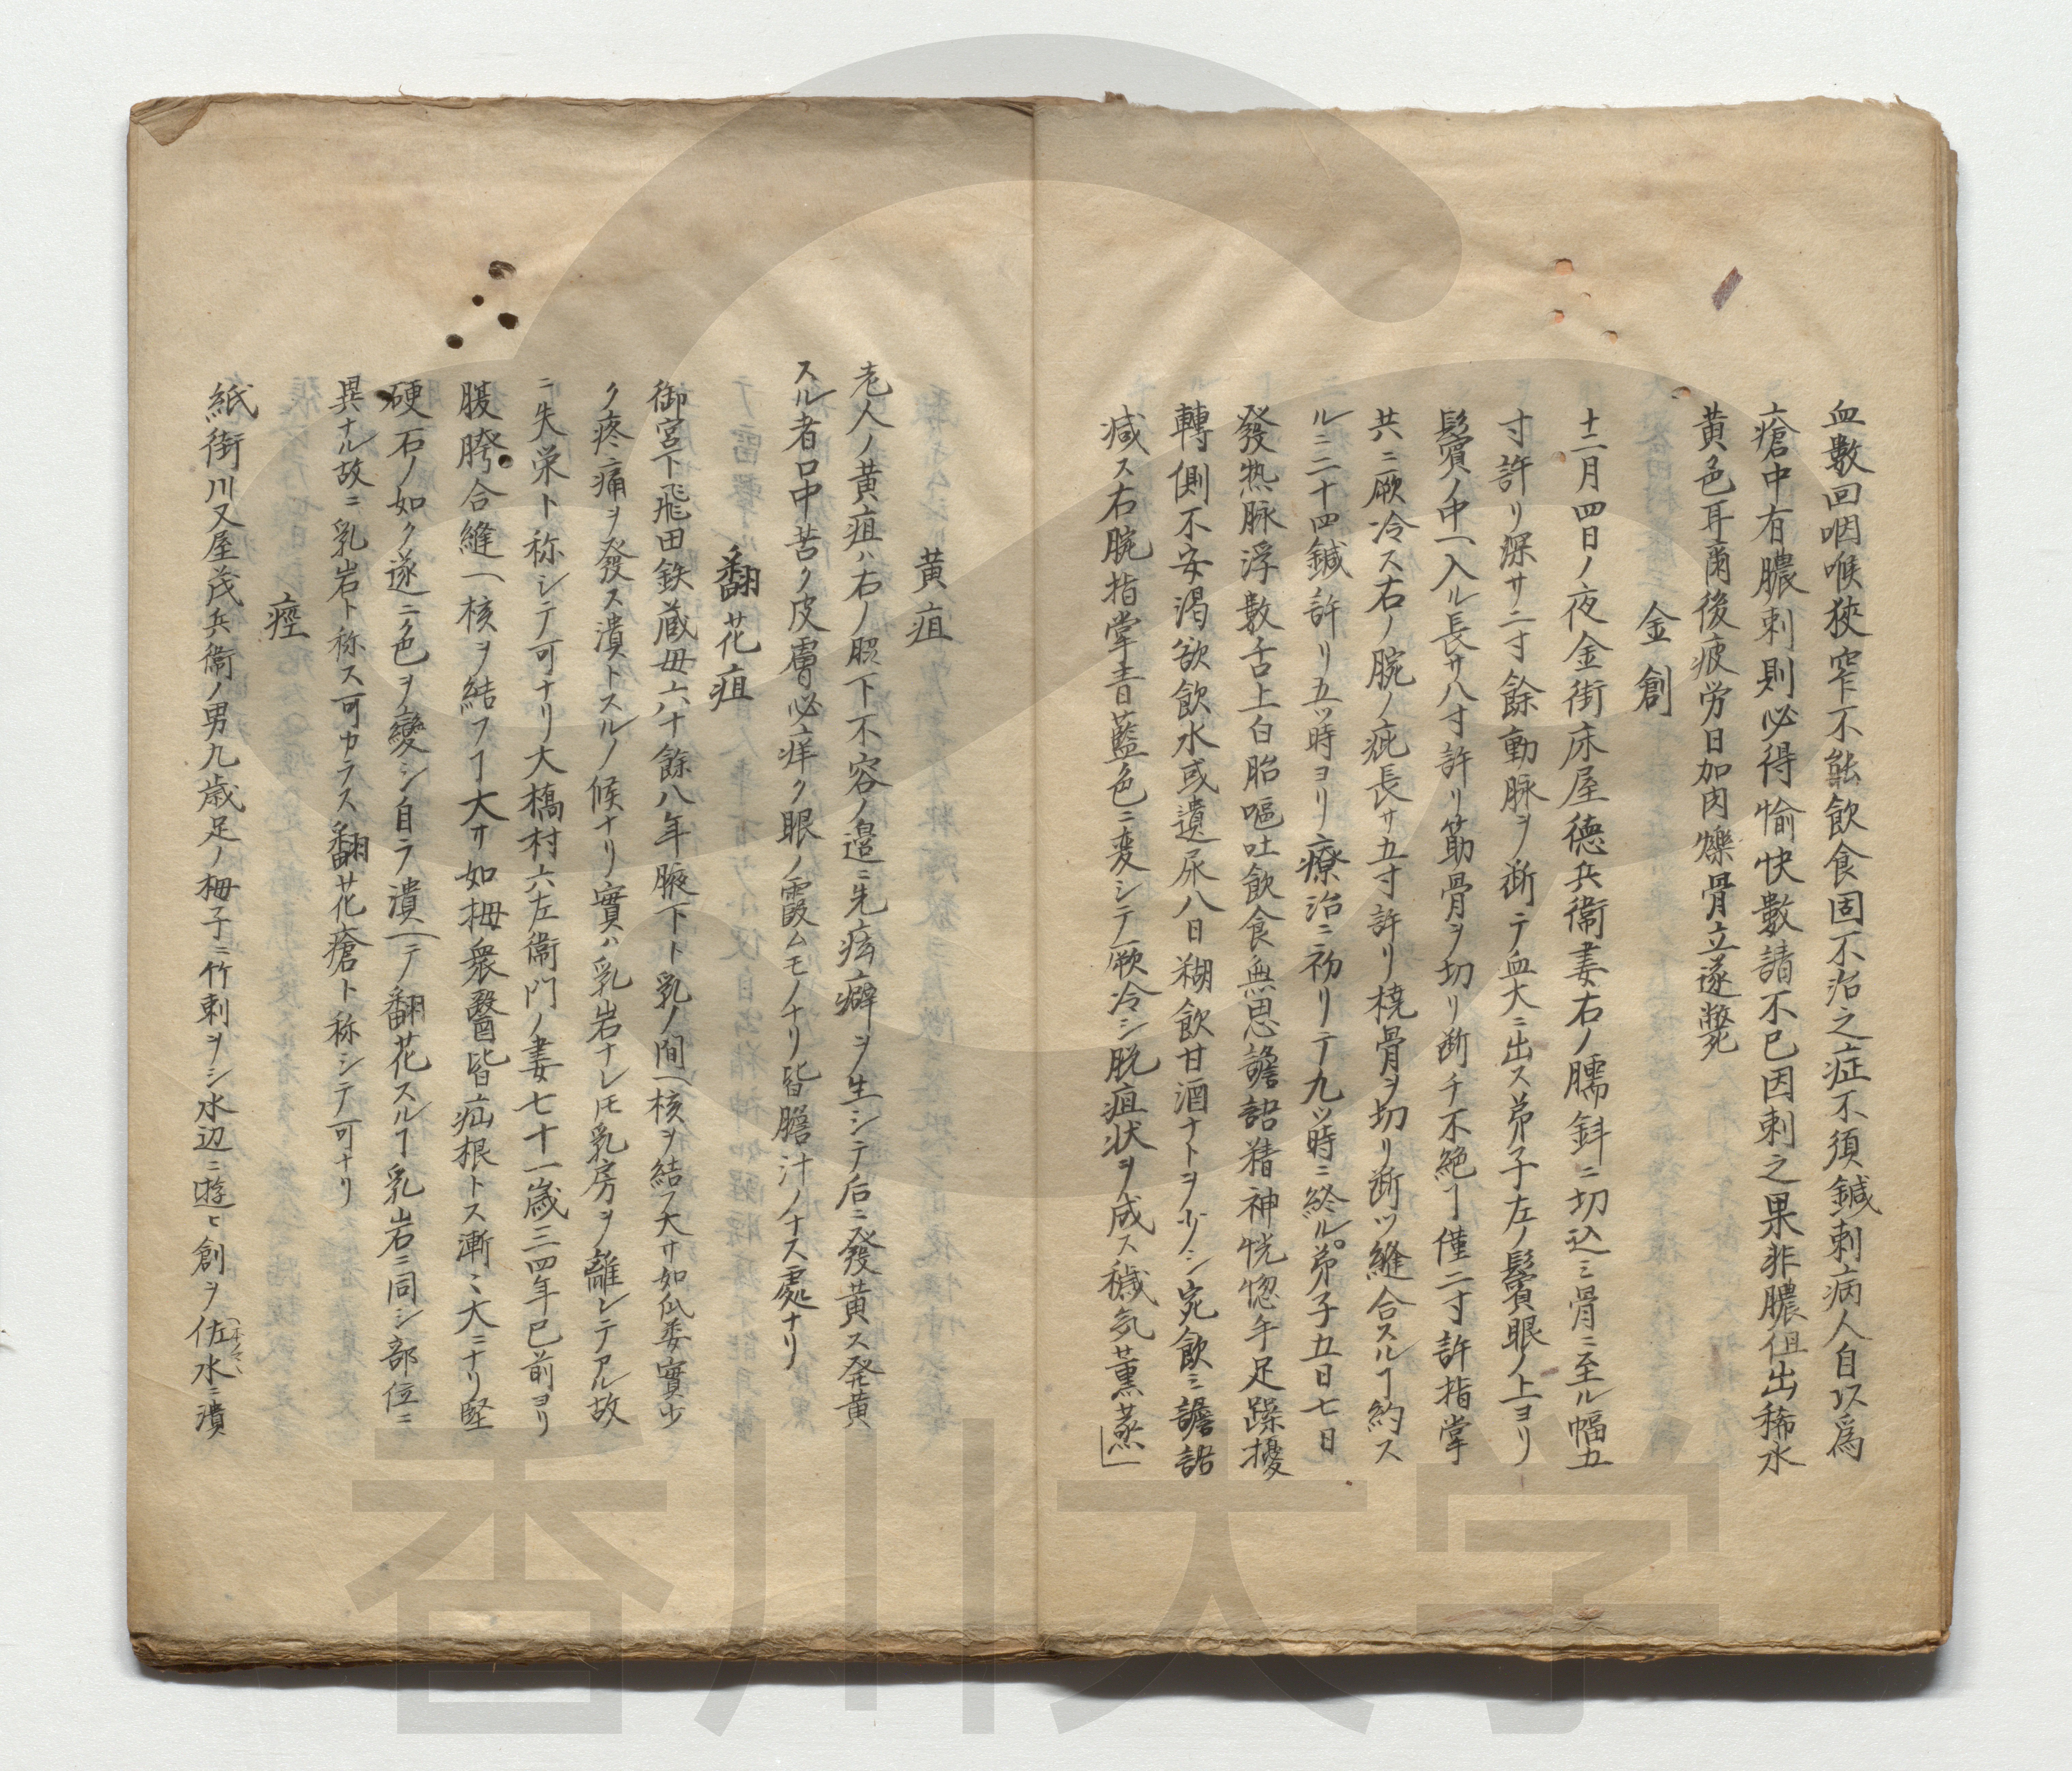 血數回咽喉狹窄不能飲食固不治之症不須鍼刺病人自以爲
瘡中有膿刺則必得愉快數請不已因刺之果非膿但出稀水
黄色耳爾後疲労日加肉爍骨立遂斃
金創
十二月四日ノ夜金街床屋德兵衞妻右ノ臑斜ニ切込ミ骨ニ至ル幅五
寸許リ深サ二寸餘動脉ヲ断テ血大ニ出ス弟子左ノ鬢眼ノ上ヨリ
鬢ノ中ヘ入ル長サ八寸許リ筋骨ヲ切リ断チ不絶ヿ僅二寸許指掌
共ニ厥冷ス右ノ腕ノ疵長サ五寸許リ橈骨ヲ切リ断ツ縫合スルヿ約ス
ルニ二十四鍼許リ五ッ時ヨリ療治ニ初リテ九ッ時ニ終ル。弟子五日七日
發熱脉浮數舌上白胎嘔吐飲食無思譫語精神恍惚手足躁擾
轉側不安渇欲飲水或遺尿八日糊飲甘酒ナトヲ少シ宛飲ミ譫語
減ス右腕指掌青藍色ニ変シテ厥冷シ脱疽状ヲ成ス穢気薫蒸」
黄疸
老人ノ黄疸ハ右ノ脇下不容ノ邉ニ先痃癖ヲ生シテ后ニ發黄ス発黄
スル者口中苦ク皮膚必痒ク眼ノ霞ムモノナリ皆膽汁ノナス處ナリ
翻花疽
御宮下飛田鉄蔵母六十餘八年腋下ト乳ノ間ヘ核ヲ結フ大サ如瓜委實少
ク疼痛ヲ發ス潰トスルノ候ナリ實ハ乳岩ナレ𪜈乳房ヲ離レテアル故
ニ失栄ト称シテ可ナリ大橋村六左衞門ノ妻七十一歳三四年已前ヨリ
腰胯合縫ヘ核ヲ結フヿ大サ如梅衆醫皆疝根トス漸々大ニナリ堅
硬石ノ如ク遂ニ色ヲ變シ自ラ潰ヘテ翻花スルヿ乳岩ニ同シ部位ニ
異ナル故ニ乳岩ト称ス可カラス翻花瘡ト称シテ可ナリ
痙
紙街川又屋茂兵衞ノ男九歳足ノ拇子ニ竹刺ヲシ水辺ニ遊ヒ創ヲ水ニ漬